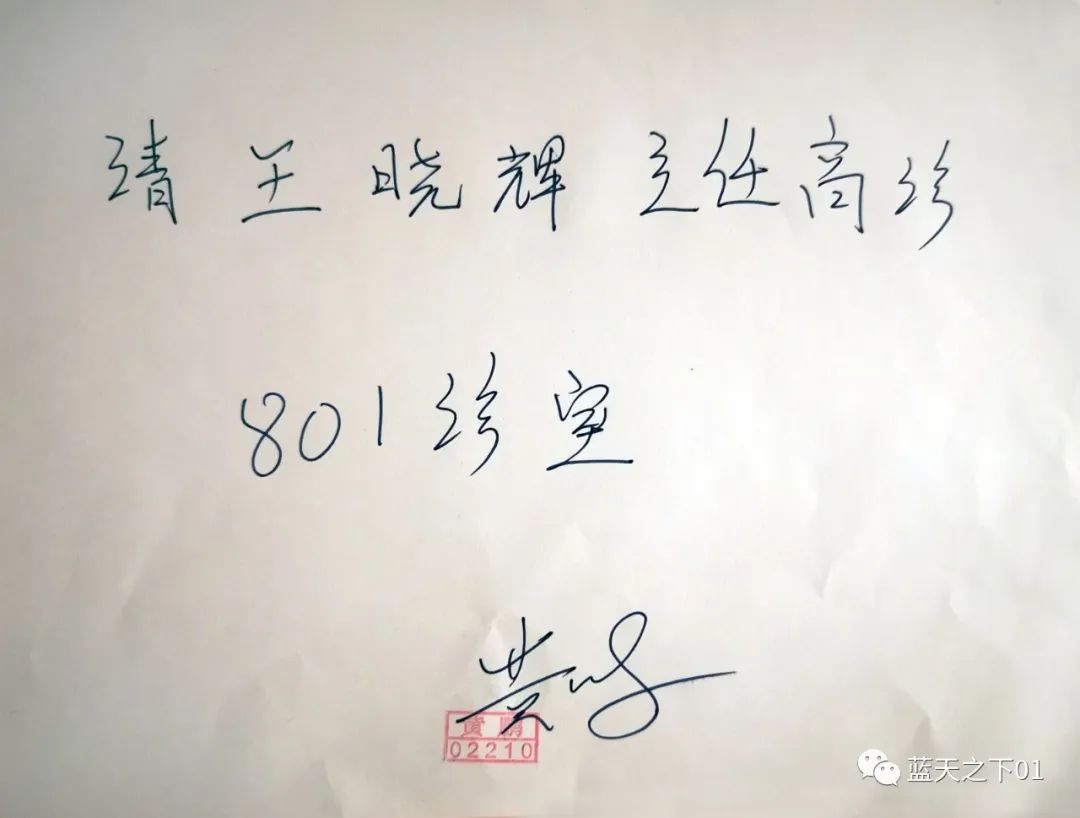 请王晓辉主任高诊
801诊室
黄鹏
黄鹏
02210
蓝天之下01